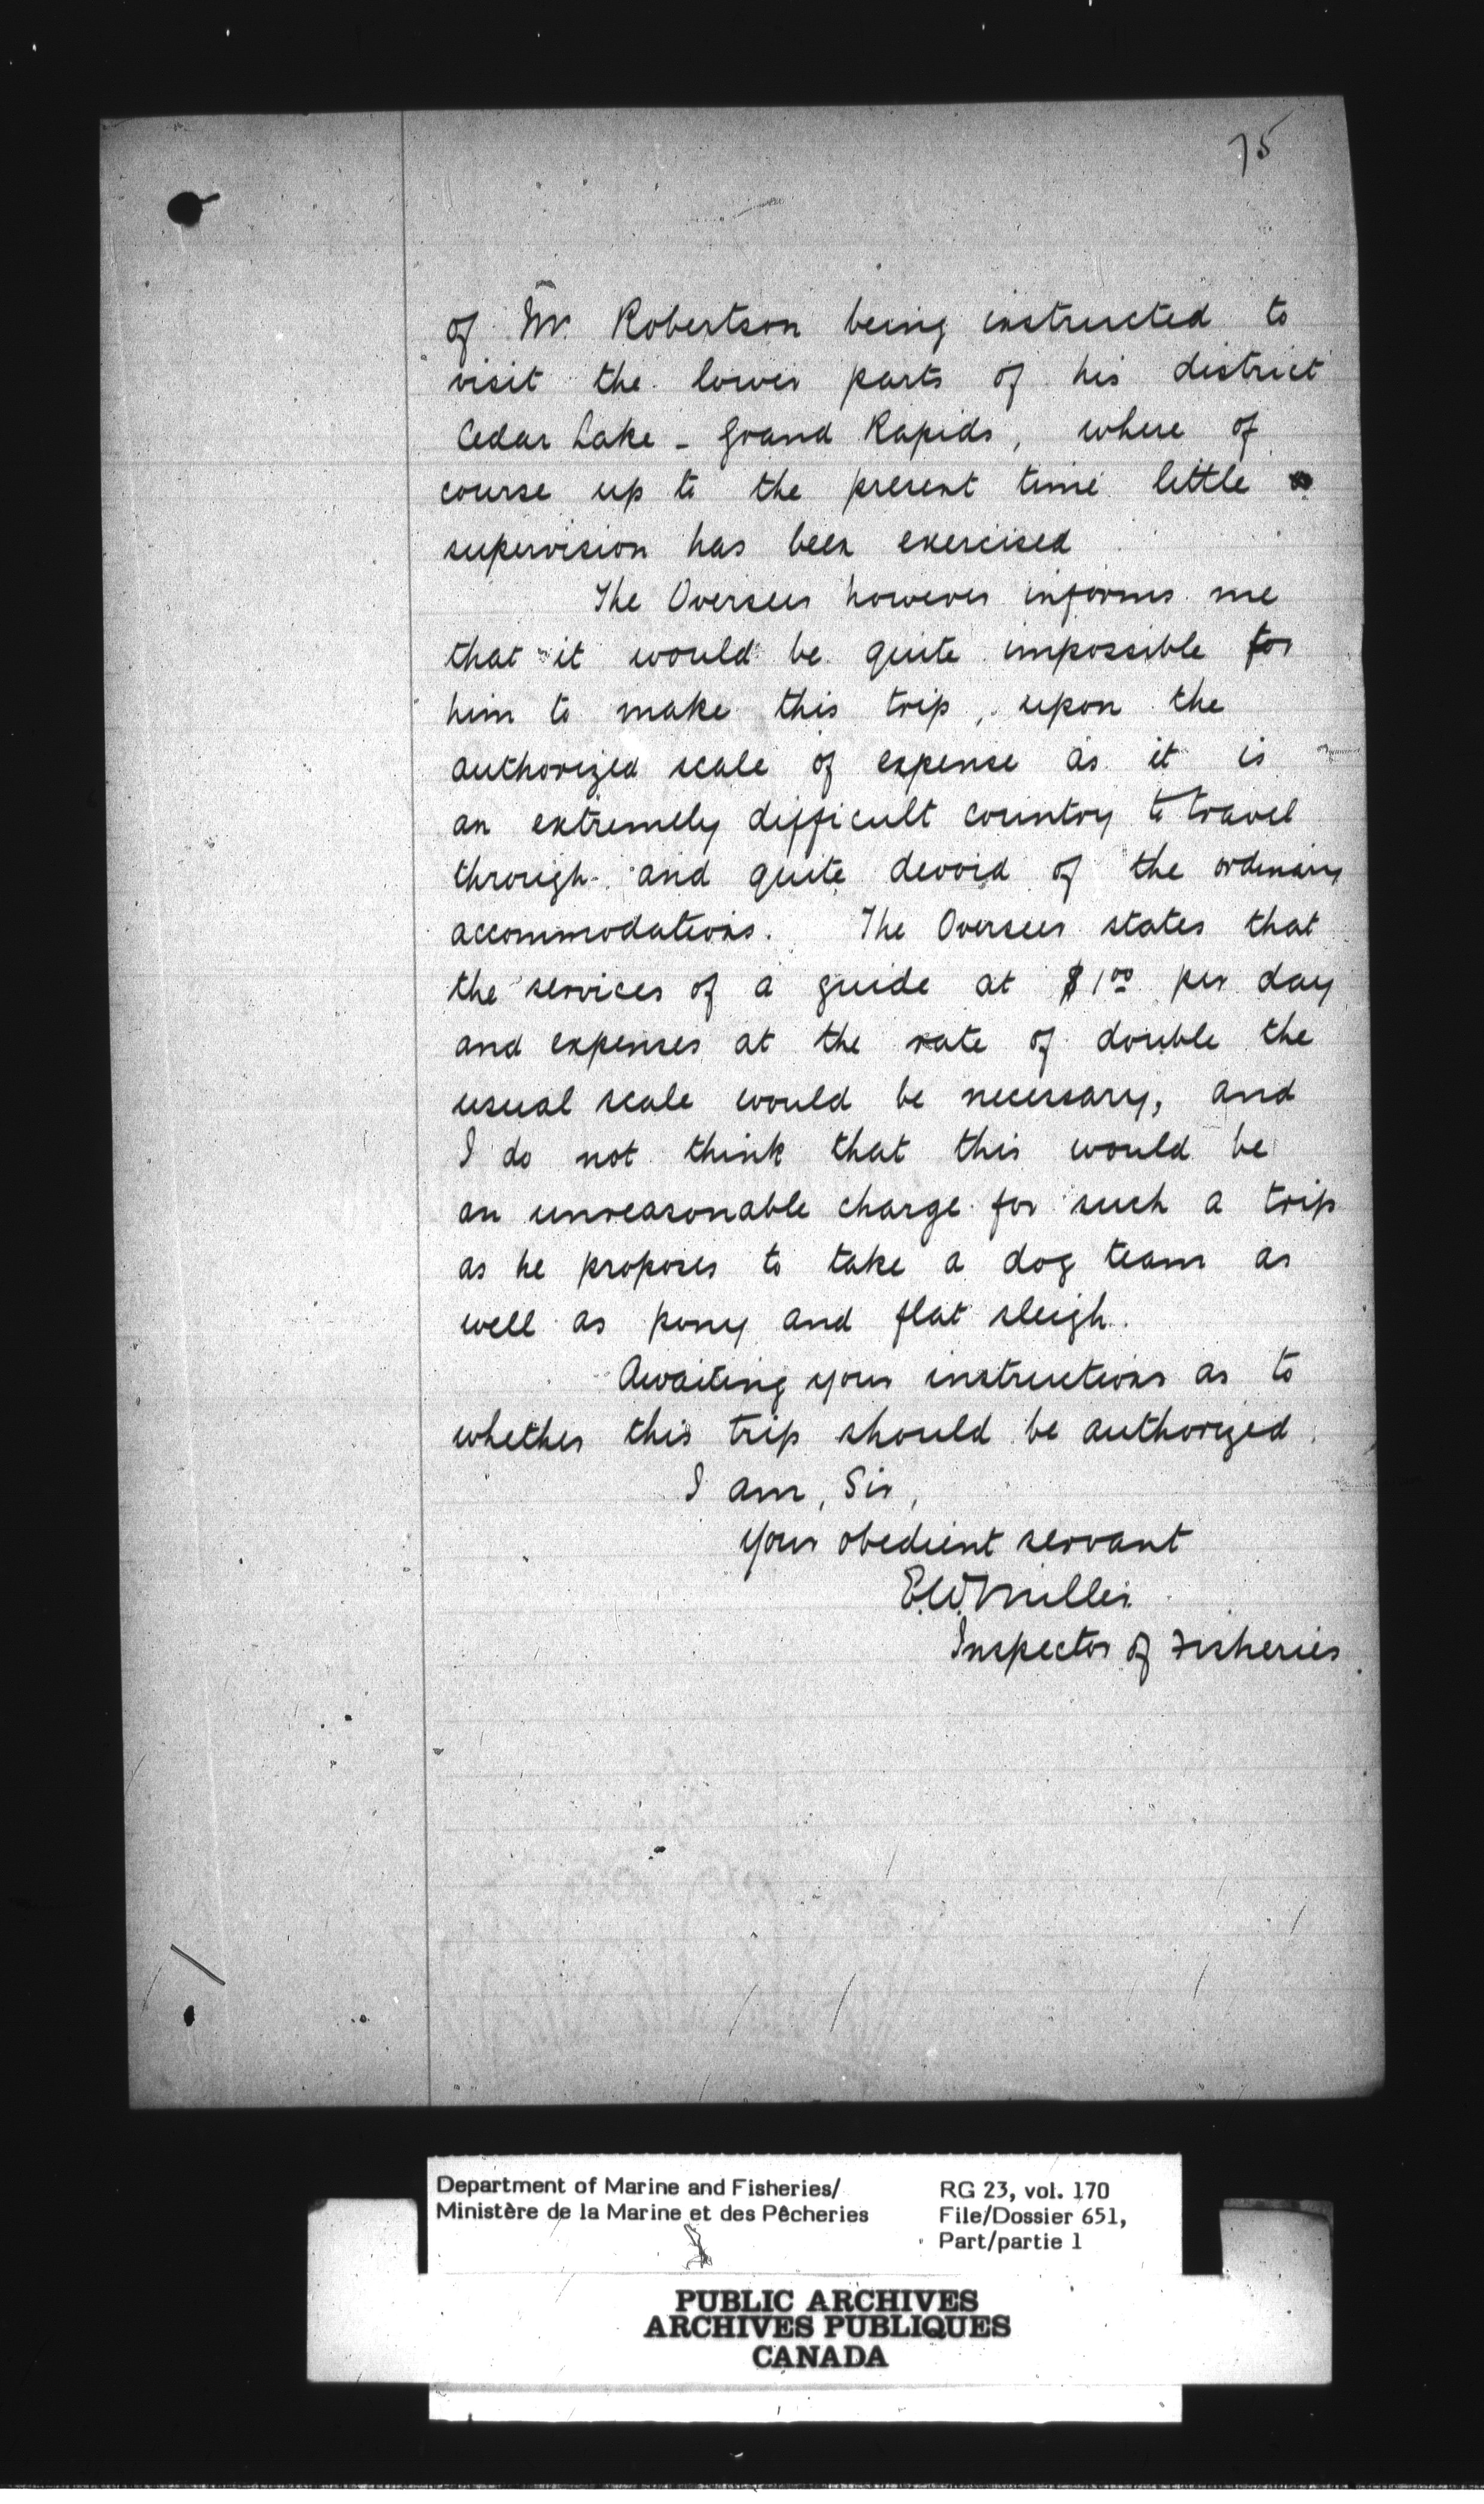 75
of Mr. Robertson being instructed to
visit the lower parts of his district
Cedar Lake - Grand Rapids, where of
course up to the present time little
supervision has been exercised
The Overseer however informs me
that it would be quite impossible for
him to make this trip, upon the
authorized scale of expense as it is
an extremely difficult country to travel
through and quite devoid of the ordinary
accommodations. The Overseer states that
the services of a guide at $1.00 per day
and expenses at the rate of double the
usual scale would be necessary, and
I do not think that this would be
an unreasonable charge for such a trip
as he proposes to take a dog team as
well as pony and flat sleigh.
Awaiting your instructions as to
whether this trip should be authorized.
I am, Sir,
Your obedient servant
E.W. Miller
Inspector of Fisheries.
Department of Marine and Fisheries/
Ministère de la Marine et des Pêcheries
RG 23, vol. 170
File/Dossier 651,
Part/partie 1
PUBLIC ARCHIVES
ARCHIVES PUBLIQUES
CANADA